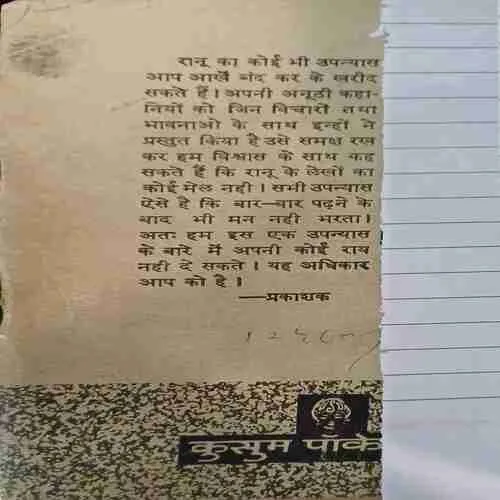 रानू का कोई भी उपन्यास
आप आखें बंद कर के खरीद
सकते हैं। अपनी अनूठी कहा-
नियों को जिन विचारों तथा
भावनाओ के साथ इन्हों ने
प्रस्तुत किया है उसे समक्ष रख
कर हम विश्वास के साथ कह
सकते हैं कि रानू के लेखों का
कोई मेल नही। सभी उपन्यास
ऐसे है कि बार-बार पढ़ने के
बाद भी मन नही भरता।
अतः हम इस एक उपन्यास
के बारे में अपनी कोई राय
नही दे सकते। यह अधिकार
आप को है।
—प्रकाशक
कुसुम पॉके